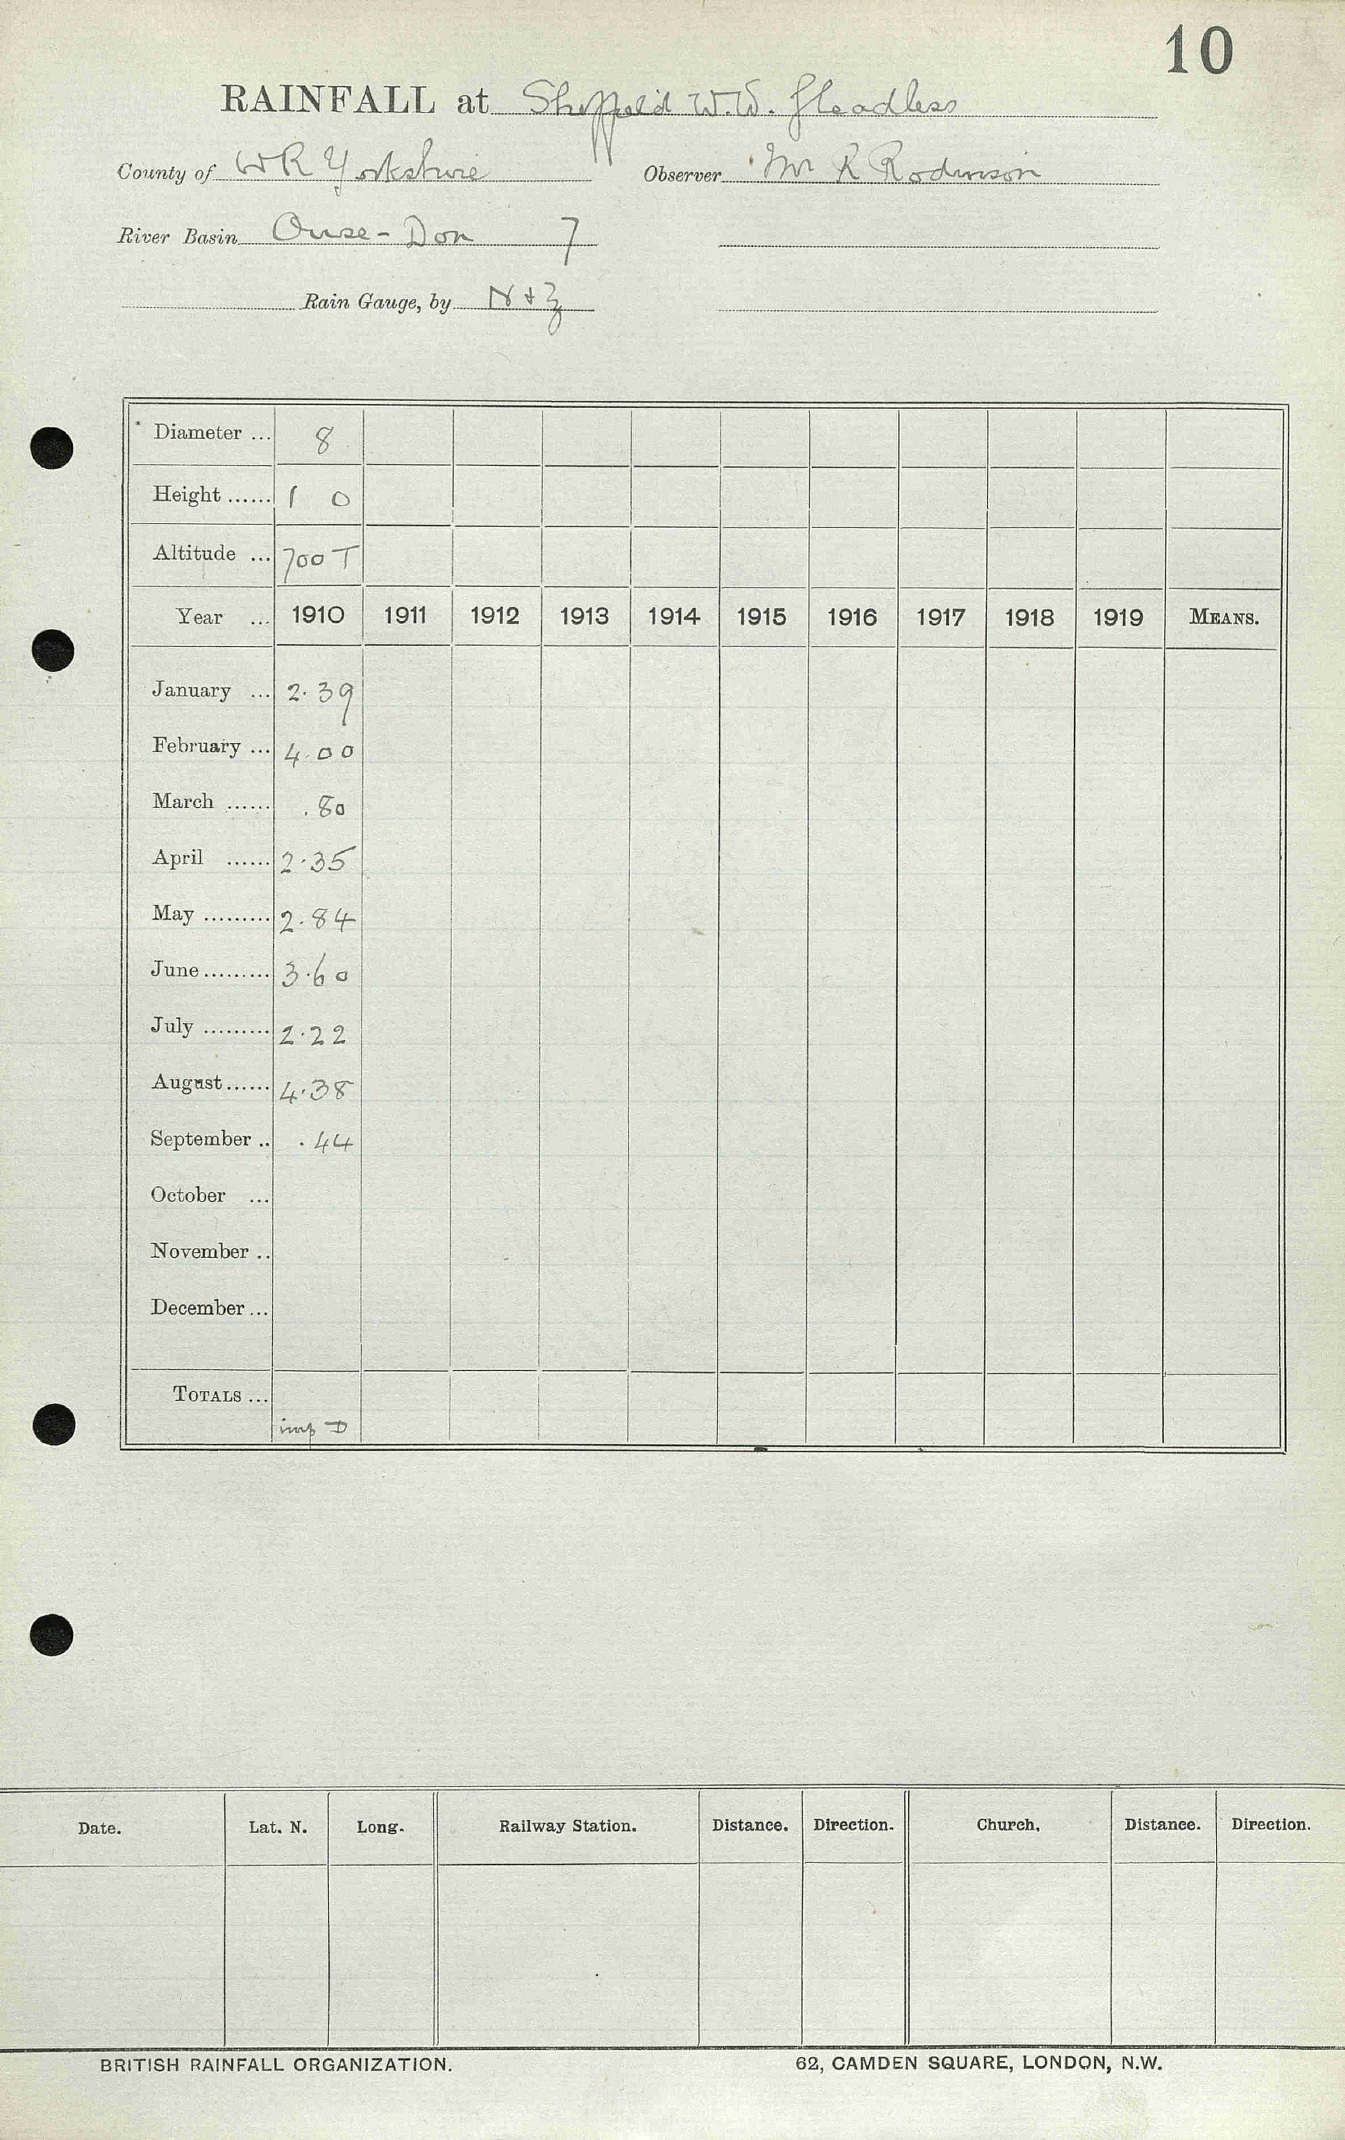 10
RAINFALL at Sheffield W.W. Gleadless
County of W R Yorkshire Observer Mr R Rodwison
River Basin Ouse - Don 7
Rain Gauge, by N & Z
Diameter ... 8
Height ...... 1 0
Altitude ... 700 T
Year ... 1910 1911 1912 1913 1914 1915 1916 1917 1918 1919 MEANS.
January ... 2.39
February ... 4.00
March ...... .80
April ...... 2.35
May ......... 2.84
June ......... 3.60
July ......... 2.22
August ...... 4.38
September .. .44
October ...
November ..
December ...
TOTALS ...
imp D
Date. Lat. N. Long. Railway Station. Distance. Direction. Church. Distance. Direction.
BRITISH RAINFALL ORGANIZATION. 62, CAMDEN SQUARE, LONDON, N.W.